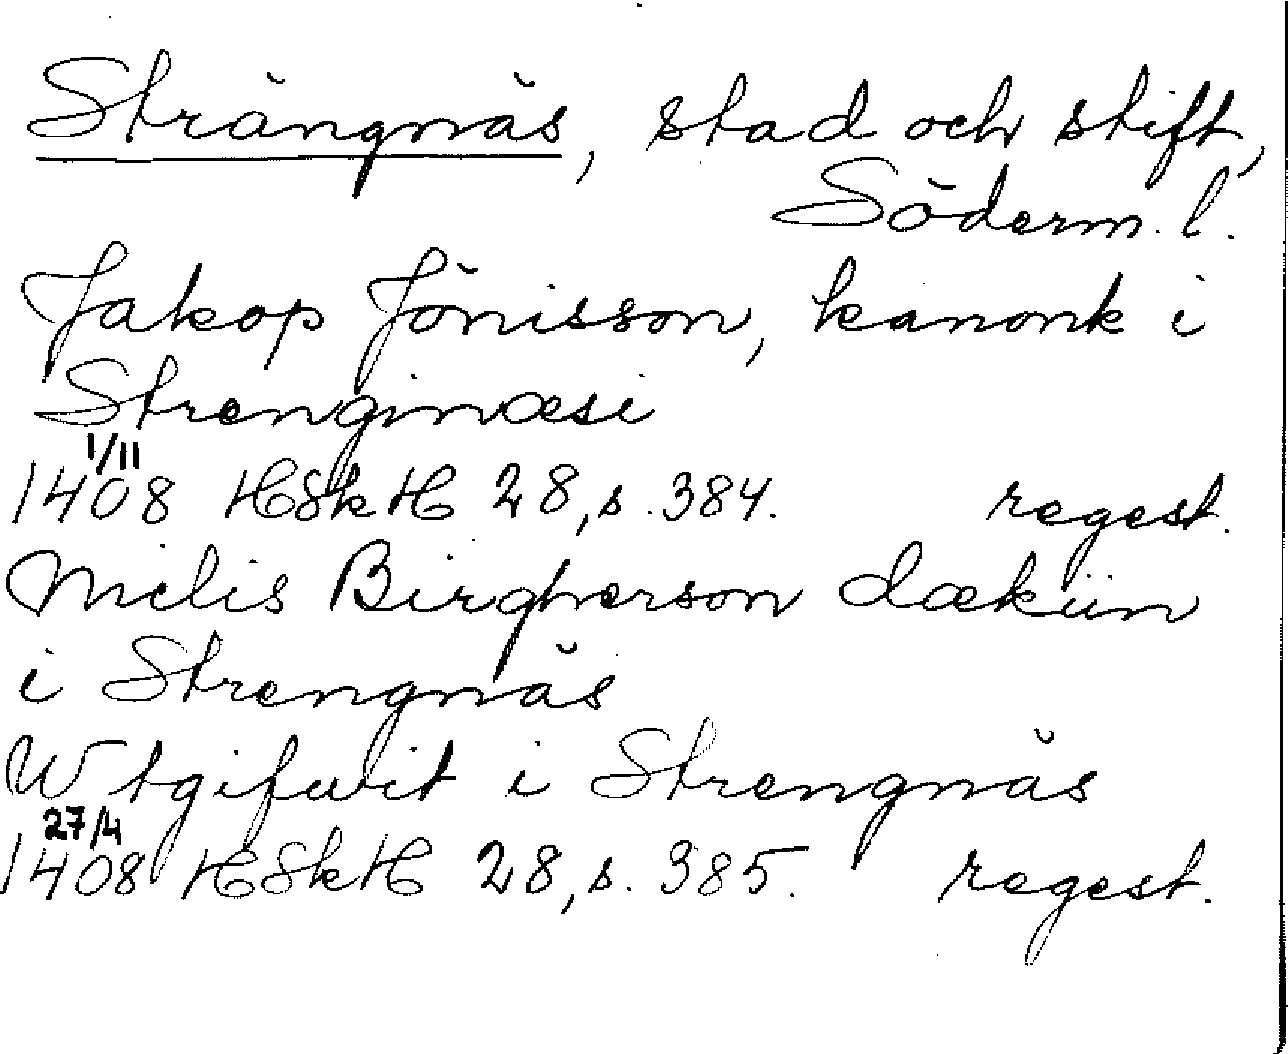 Strängnäs, stad och stift,
Söderm. l.
Jakop Jönisson, kanonk i
Strenginæsi
1/11
1408 HSkH 28, s. 384. regest.
Niclis Birgherson dækün
i Strengnäs
Wtgifwit i Strengnäs
27/4
1408 HSkH 28, s. 385. regest.